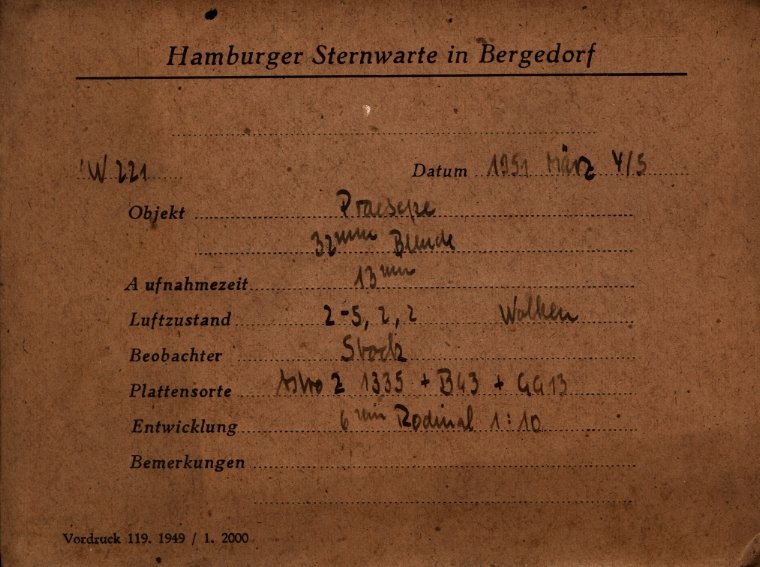 Hamburger Sternwarte in Bergedorf
W 221 Datum 1951 März 4/5
Objekt Praesepe
32mm Blende
Aufnahmezeit 13 min
Luftzustand 2-5, 2, 2 Wolken
Beobachter Stock
Plattensorte Astro 2 1335 + BG3 + GG13
Entwicklung 6 min Rodinal 1:10
Bemerkungen
Vordruck 119. 1949 / 1. 2000